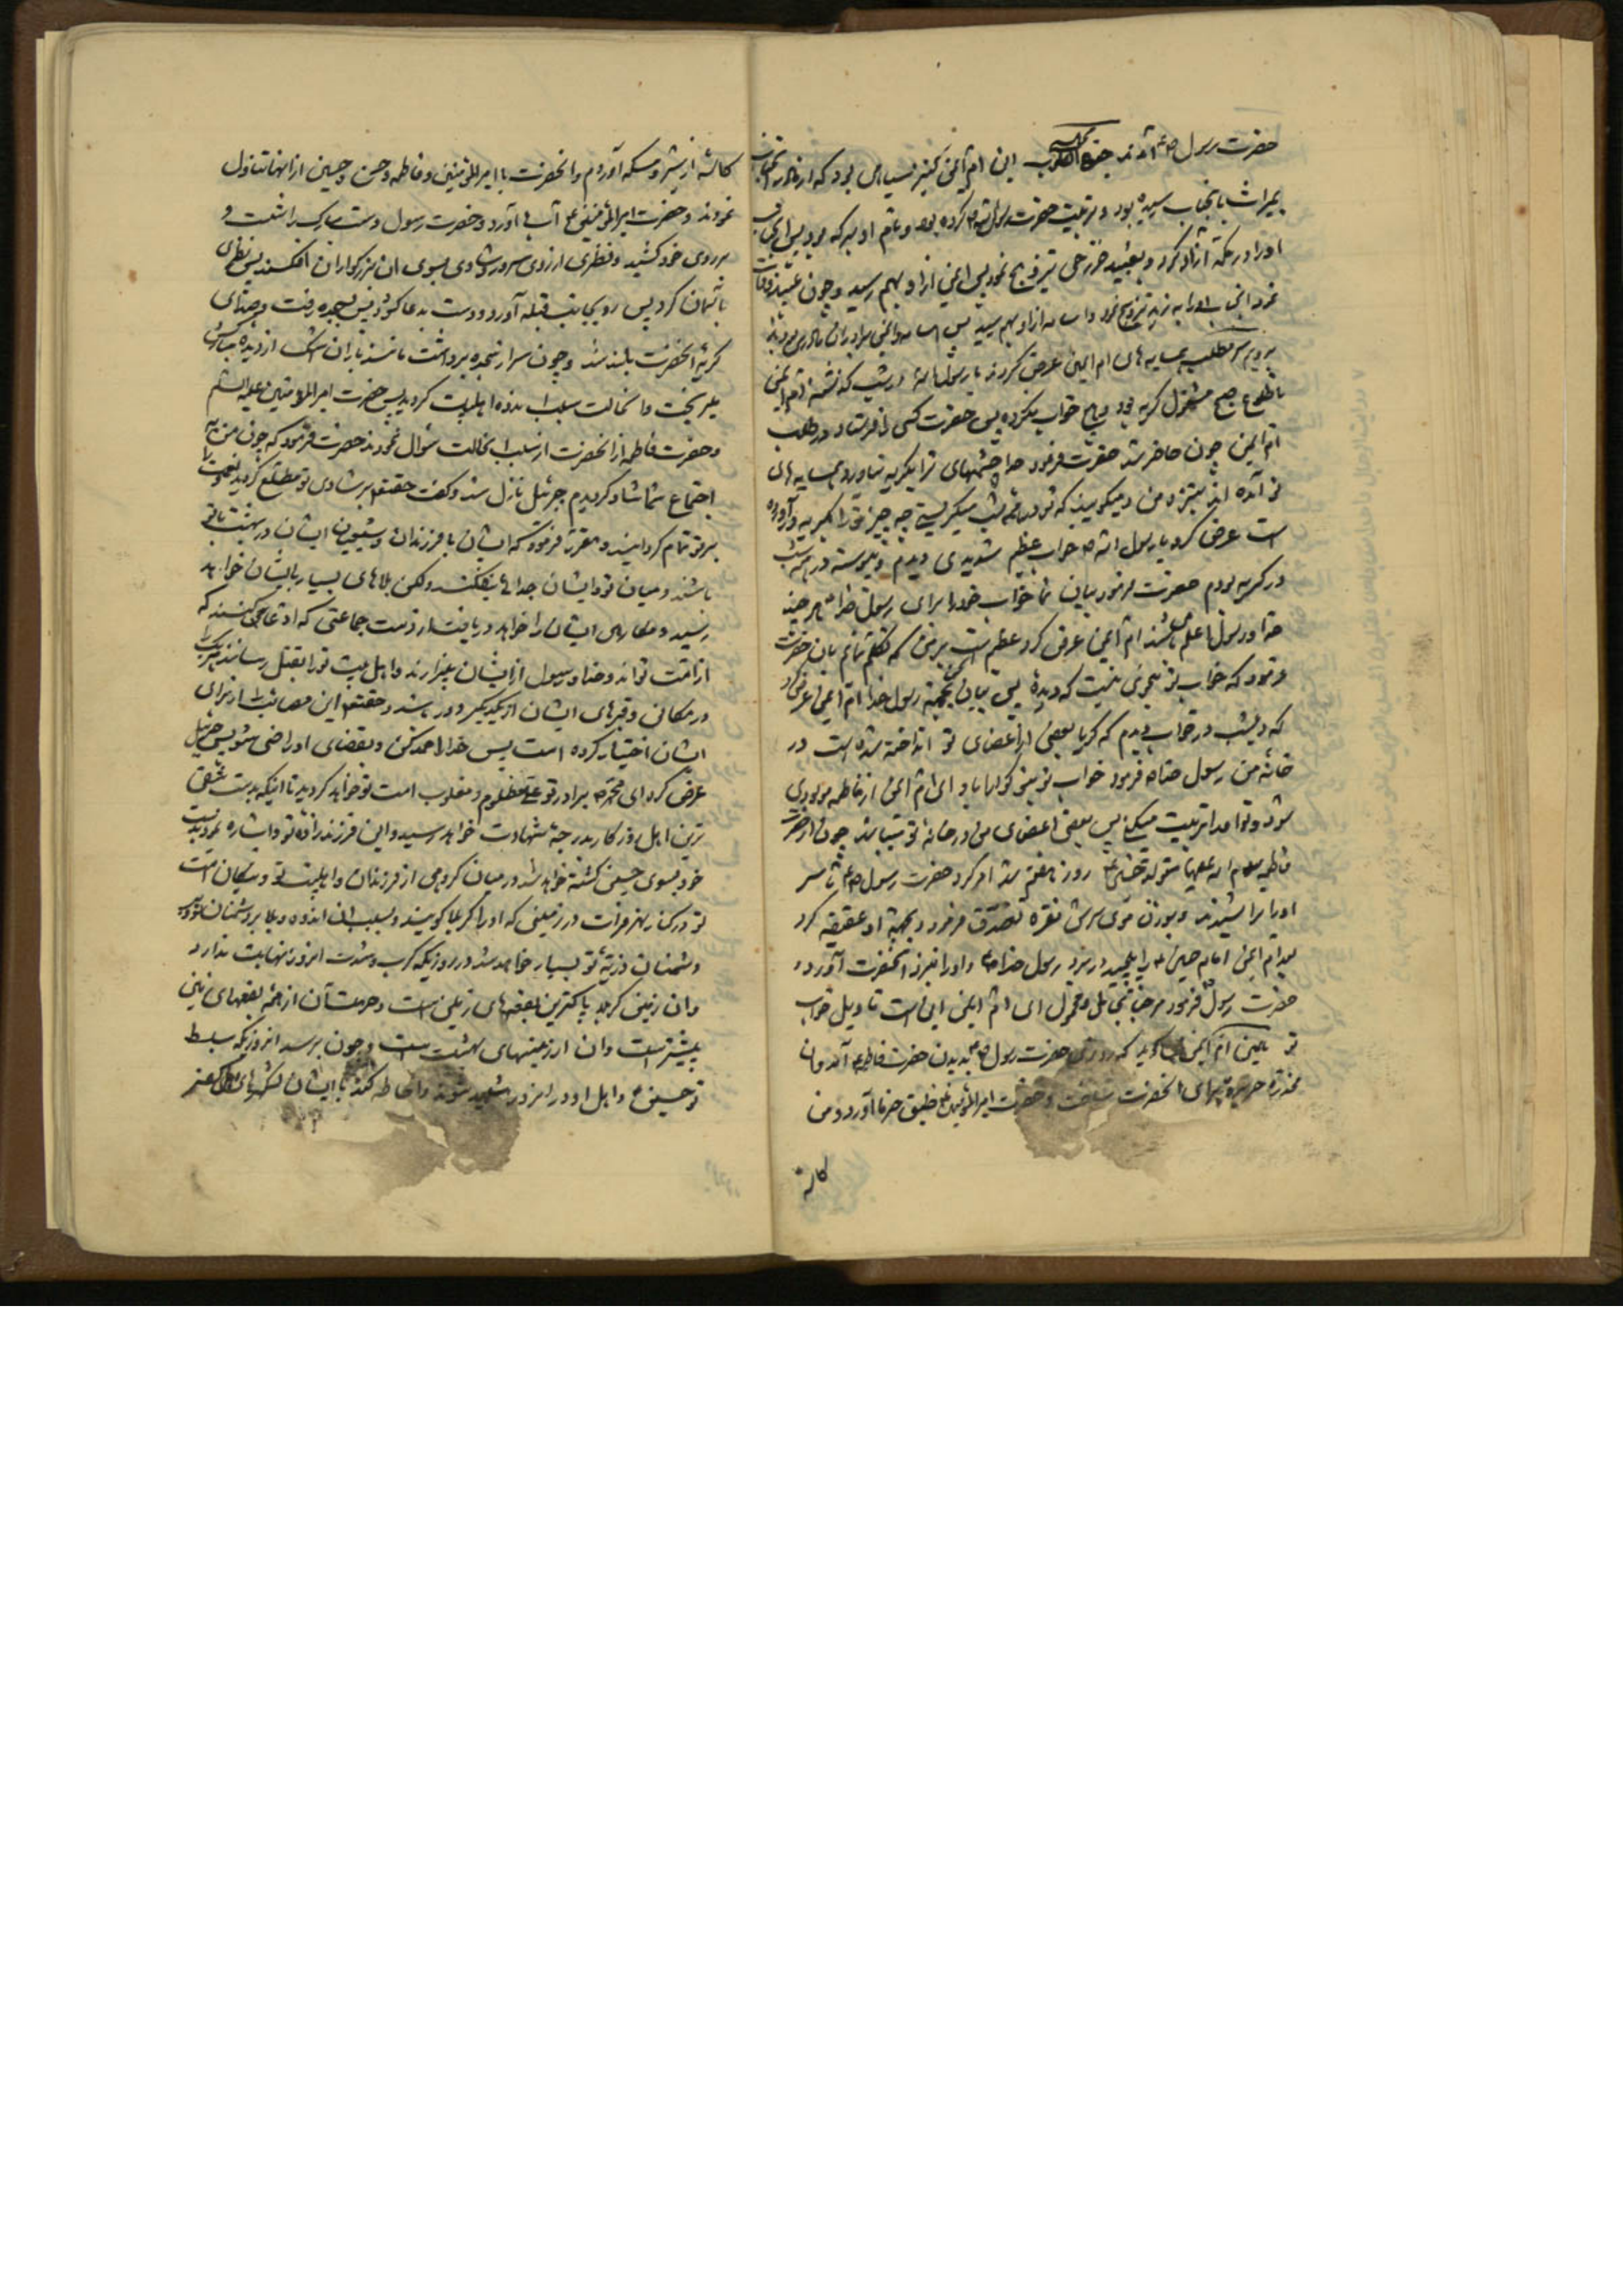 حضرت رسول ص آمدند این ام ایمن کنیز سیاهی بود که از مادر آنجناب
بمیراث بآنجناب رسیده بود و تربیت حضرت رسول الله ص کرده بود و نام او برکه بود پس آنجناب
او را در مکه آزاد کرد و بعبید خزرجی تزویج نمود پس ایمن از او بهم رسید و چون عبید وفات
نمود آنجناب او را به زید تزویج نمود و اسامه از او بهم رسید پس اسامه و ایمن برادران مادری بودند
برویم بر سر مطلب همسایه های ام ایمن عرض کردند یا رسول الله در شب گذشته ام ایمن
تا طلوع صبح مشغول گریه بود و هیچ خواب نکرده پس حضرت کسی را فرستاد در طلب
ام ایمن چون حاضر شد حضرت فرمود خدا چشمهای ترا بگریه نیاورد همسایه های
تو آمده اند بنزد من و میگویند که تو در همه شب میگریستی چه چیز تو را بگریه درآورده
است عرض کرد یا رسول الله ص خواب عظیم شدیدی دیدم و پیوسته در همه شب
در گریه بودم حضرت فرمود بیان نما خواب خود را برای رسول خدا هر چند
خدا و رسول اعلم میباشند ام ایمن عرض کرد عظیم است بر من که تکلم نمایم بآن حضرت
فرمود که خواب تو بنحوی نیست که دیدهٔ پس بیان کن بجهة رسول خدا ام ایمن عرض کرد
که دیشب در خواب دیدم که گویا بعضی از اعضای تو انداخته شده است در
خانهٔ من رسول خدا ص فرمود خواب تو نیکو باد ای ام ایمن از فاطمه مولودی
شود و تو او را تربیت میکنی پس بعضی اعضای من در خانه تو میباشد چون از حضرت
فاطمه سلام الله علیها متولد شد حسین ع روز هفتم شد امر کرد حضرت رسول ص تا سر
او را تراشیدند و بوزن موی سرش نقره تصدق فرمود و بجهة او عقیقه کرد
پس ام ایمن امام حسین ع را پیچید در برد رسول خدا ص و او را بنزد آنحضرت آورد
حضرت رسول فرمود مرحبا بحامل و محمول ای ام ایمن این است تاویل خواب
تو ام ایمن گوید که روزی حضرت رسول ص بدیدن حضرت فاطمه ع آمد و آن
مخدره حریره برای آنحضرت ساخت و حضرت امیر المؤمنین ع طبق خرما آورد و من
کاسه
کاسهٔ از شیر و مسکه آوردم و آنحضرت با امیر المؤمنین و فاطمه و حسن و حسین از آنها تناول
نمودند و حضرت امیر المؤمنین ع آب آورد و حضرت رسول دست مبارک را شست و
بر روی خود کشید و نظری از روی سرور و شادی بسوی آن بزرگواران افکند پس نظری
بآسمان کرد پس رو بجانب قبله آورد و دست بدعا گشود پس بسجده رفت و صدای
گریهٔ آنحضرت بلند شد و چون سر از سجده برداشت مانند باران اشک از دیده مبارکش
میریخت و آنحالت سبب اندوه اهلبیت گردید پس حضرت امیر المؤمنین علیه السلام
و حضرت فاطمه از آنحضرت از سبب آنحالت سؤال نمودند حضرت فرمود که چون من به
اجتماع شما شاد گردیدم جبرئیل نازل شد و گفت حقتعالی بر شادی تو مطلع گردید نعمت را
بر تو تمام گردانید و مقرر فرمود که ایشان با فرزندان و شیعیان ایشان در بهشت با تو
باشند و میان تو و ایشان جدائی نیفکند ولکن بلاهای بسیار بایشان خواهد
رسید و مکارهی ایشان را خواهد دریافت از دست جماعتی که ادعا میکنند که
از امت تواند و خدا و رسول از ایشان بیزارند و اهل بیت تو را بقتل رسانند هر یک را
در مکانی و قبرهای ایشان از یکدیگر دور باشد و حقتعالی این مصائب را از برای
ایشان اختیار کرده است پس خدا را حمد کن و بقضای او راضی شو پس جبرئیل
عرض کرد ای محمد ص برادر تو علی مظلوم و مغلوب امت تو خواهد گردید تا اینکه بدست شقی
ترین اهل روزگار بدرجهٔ شهادت خواهد رسید و این فرزندزادهٔ تو و اشاره نمود بدست
خود بسوی حسین کشته خواهد شد در میان گروهی از فرزندان و اهلبیت تو و نیکان امت
تو در کنار نهر فرات در زمینی که او را کربلا گویند و بسبب آن اندوه و بلا بر دشمنان تو و
دشمنان ذریهٔ تو بسیار خواهد شد در روزیکه کرب و شدت آنروز نهایت ندارد
و آن زمین کربلا پاکترین بقعهای زمین است و حرمت آن از همه بقعهای زمین
بیشتر است و آن از زمینهای بهشت است و چون برسد آنروزیکه سبط
تو حسین ع و اهل او در آنروز شهید شوند و احاطه کند بایشان لشکرهای اهل کفر